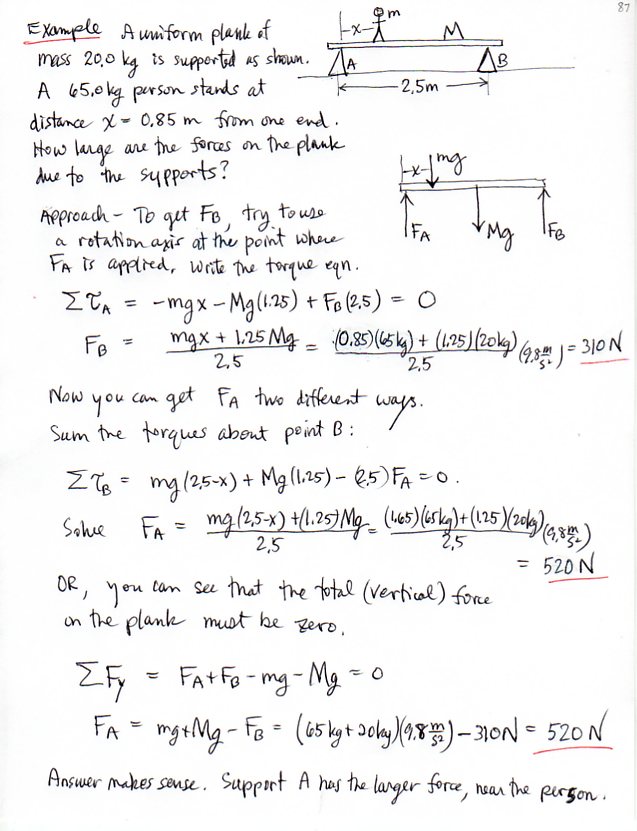 87
Example A uniform plank of
mass 20.0 kg is supported as shown.
A 65.0kg person stands at
distance x = 0.85 m from one end.
How large are the forces on the plank
due to the supports?
-x- m M
A B
2.5m
-x- mg
FA Mg FB
Approach - To get FB, try to use
a rotation axis at the point where
FA is applied. Write the torque eqn.
Στ_A = -mgx - Mg(1.25) + FB(2.5) = 0
FB = (mgx + 1.25 Mg)/2.5 = ((0.85)(65kg) + (1.25)(20kg))/2.5 (9.8 m/s²) = 310 N
Now you can get FA two different ways.
Sum the torques about point B:
Στ_B = mg(2.5-x) + Mg(1.25) - (2.5)FA = 0.
Solve FA = (mg(2.5-x) + (1.25)Mg)/2.5 = ((1.65)(65kg) + (1.25)(20kg))/2.5 (9.8 m/s²)
= 520 N
OR, you can see that the total (vertical) force
on the plank must be zero.
ΣFy = FA + FB - mg - Mg = 0
FA = mg + Mg - FB = (65kg + 20kg)(9.8 m/s²) - 310N = 520 N
Answer makes sense. Support A has the larger force, near the person.